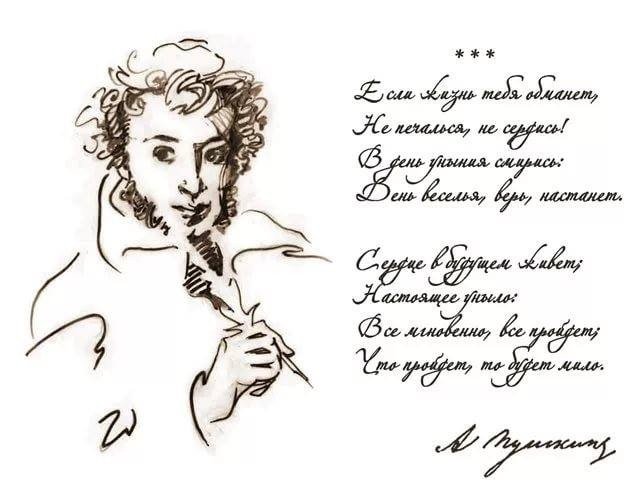 * * *
Если жизнь тебя обманет,
Не печалься, не сердись!
В день уныния смирись:
День веселья, верь, настанет.
Сердце в будущем живет;
Настоящее уныло:
Все мгновенно, все пройдет;
Что пройдет, то будет мило.
А Пушкинъ